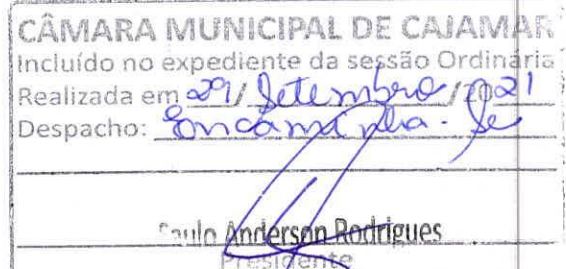 CÂMARA MUNICIPAL DE CAJAMAR
Incluído no expediente da sessão Ordinária
Realizada em 29/ Setembro /2021
Despacho: Encaminha-se
Paulo Anderson Rodrigues
Presidente